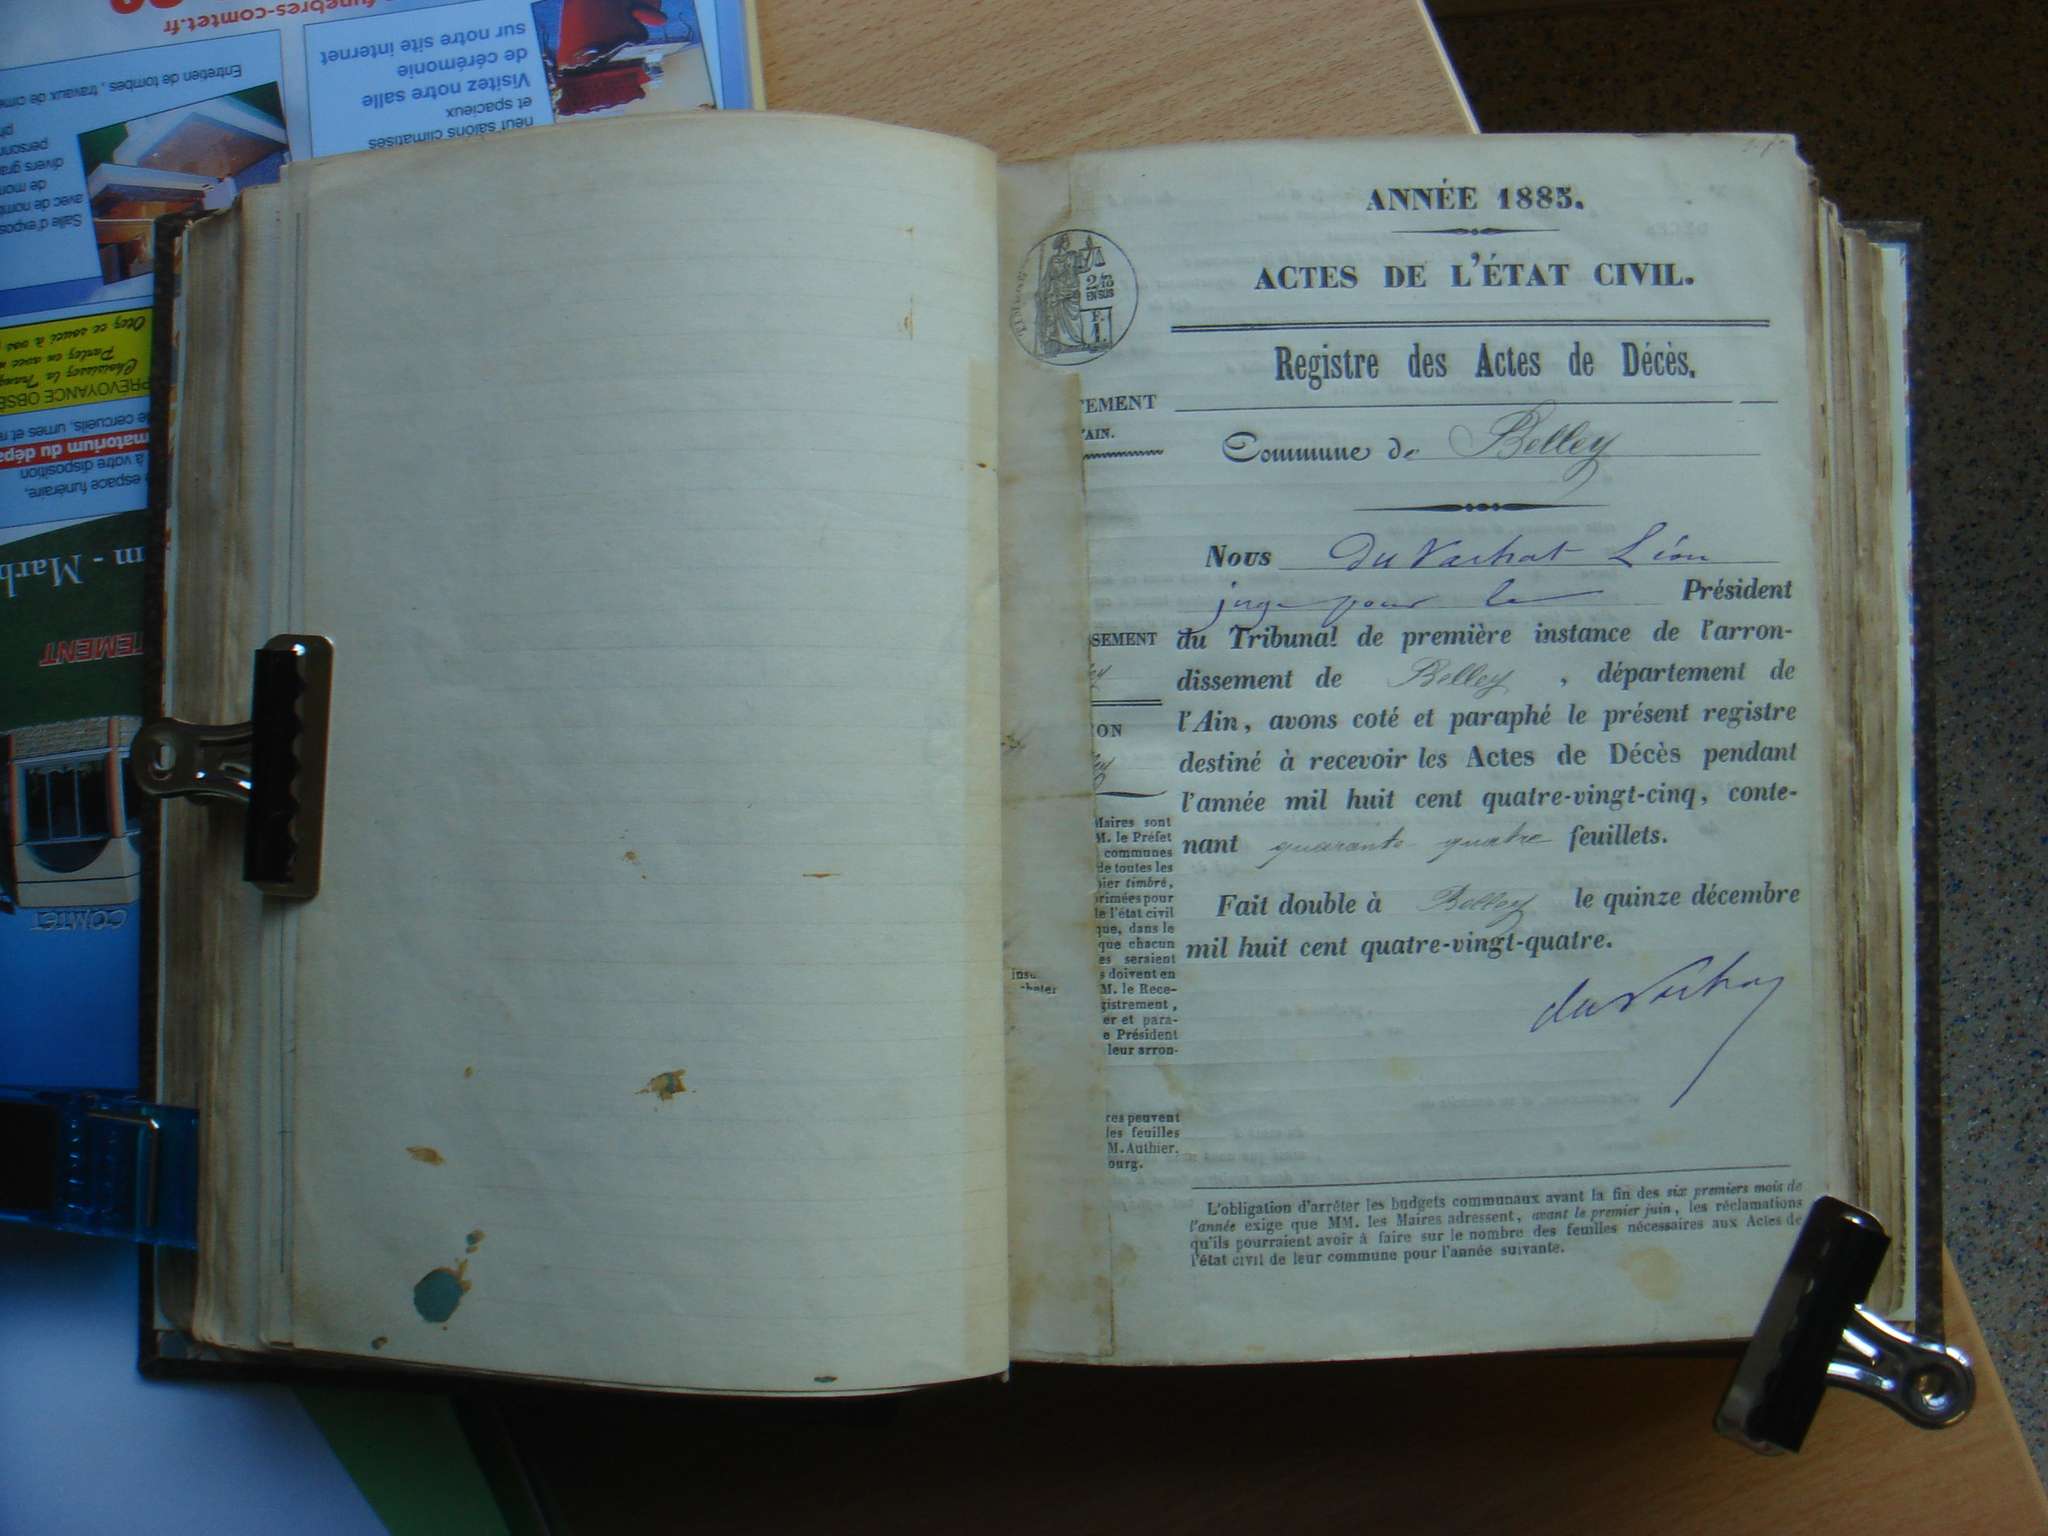 ANNÉE 1885.
ACTES DE L'ÉTAT CIVIL.
Registre des Actes de Décès.
Commune de Belley
Nous Du Vachat Léon
juge pour le Président
du Tribunal de première instance de l'arron-
dissement de Belley, département de
l'Ain, avons coté et paraphé le présent registre
destiné à recevoir les Actes de Décès pendant
l'année mil huit cent quatre-vingt-cinq, conte-
nant quarante quatre feuillets.
Fait double à Belley le quinze décembre
mil huit cent quatre-vingt-quatre.
du Vachat
L'obligation d'arrêter les budgets communaux avant la fin des six premiers mois de
l'année exige que MM. les Maires adressent, avant le premier juin, les réclamations
qu'ils pourraient avoir à faire sur le nombre des feuilles nécessaires aux Actes de
l'état civil de leur commune pour l'année suivante.
2/3
EN SUS
F.
1.
TEMENT
'AIN.
SSEMENT
ey
ON
ey
Maires sont
M. le Préfet
communes
de toutes les
ier timbré,
rimées pour
le l'état civil
que, dans le
que chacun
es seraient
s doivent en
M. le Rece-
gistrement,
er et para-
e Président
leur arron-
res peuvent
les feuilles
M. Authier,
ourg.
funebres-comtet.fr
Entretien de tombes, travaux de cime
Visitez notre salle
de cérémonie
sur notre site internet
neuf salons climatisés
et spacieux
Salle d'expos
avec de nomb
de mon
divers gra
personn
Otez ce souci à vos
Parlez en avec
Choisissez la Tranq
PRÉVOYANCE OBSÈ
de cercueils, urnes et
matorium du dépa
à votre disposition
espace funéraire,
m - Marb
TEMENT
COMTET